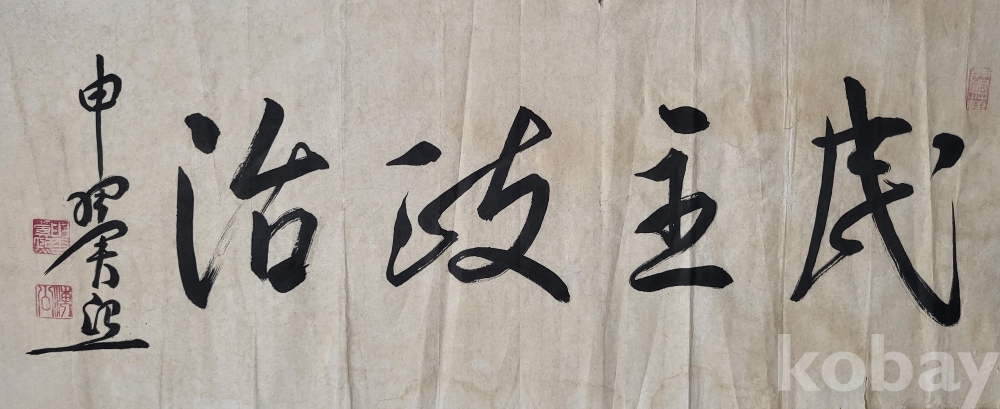 民主政治
申翼熙
kobay